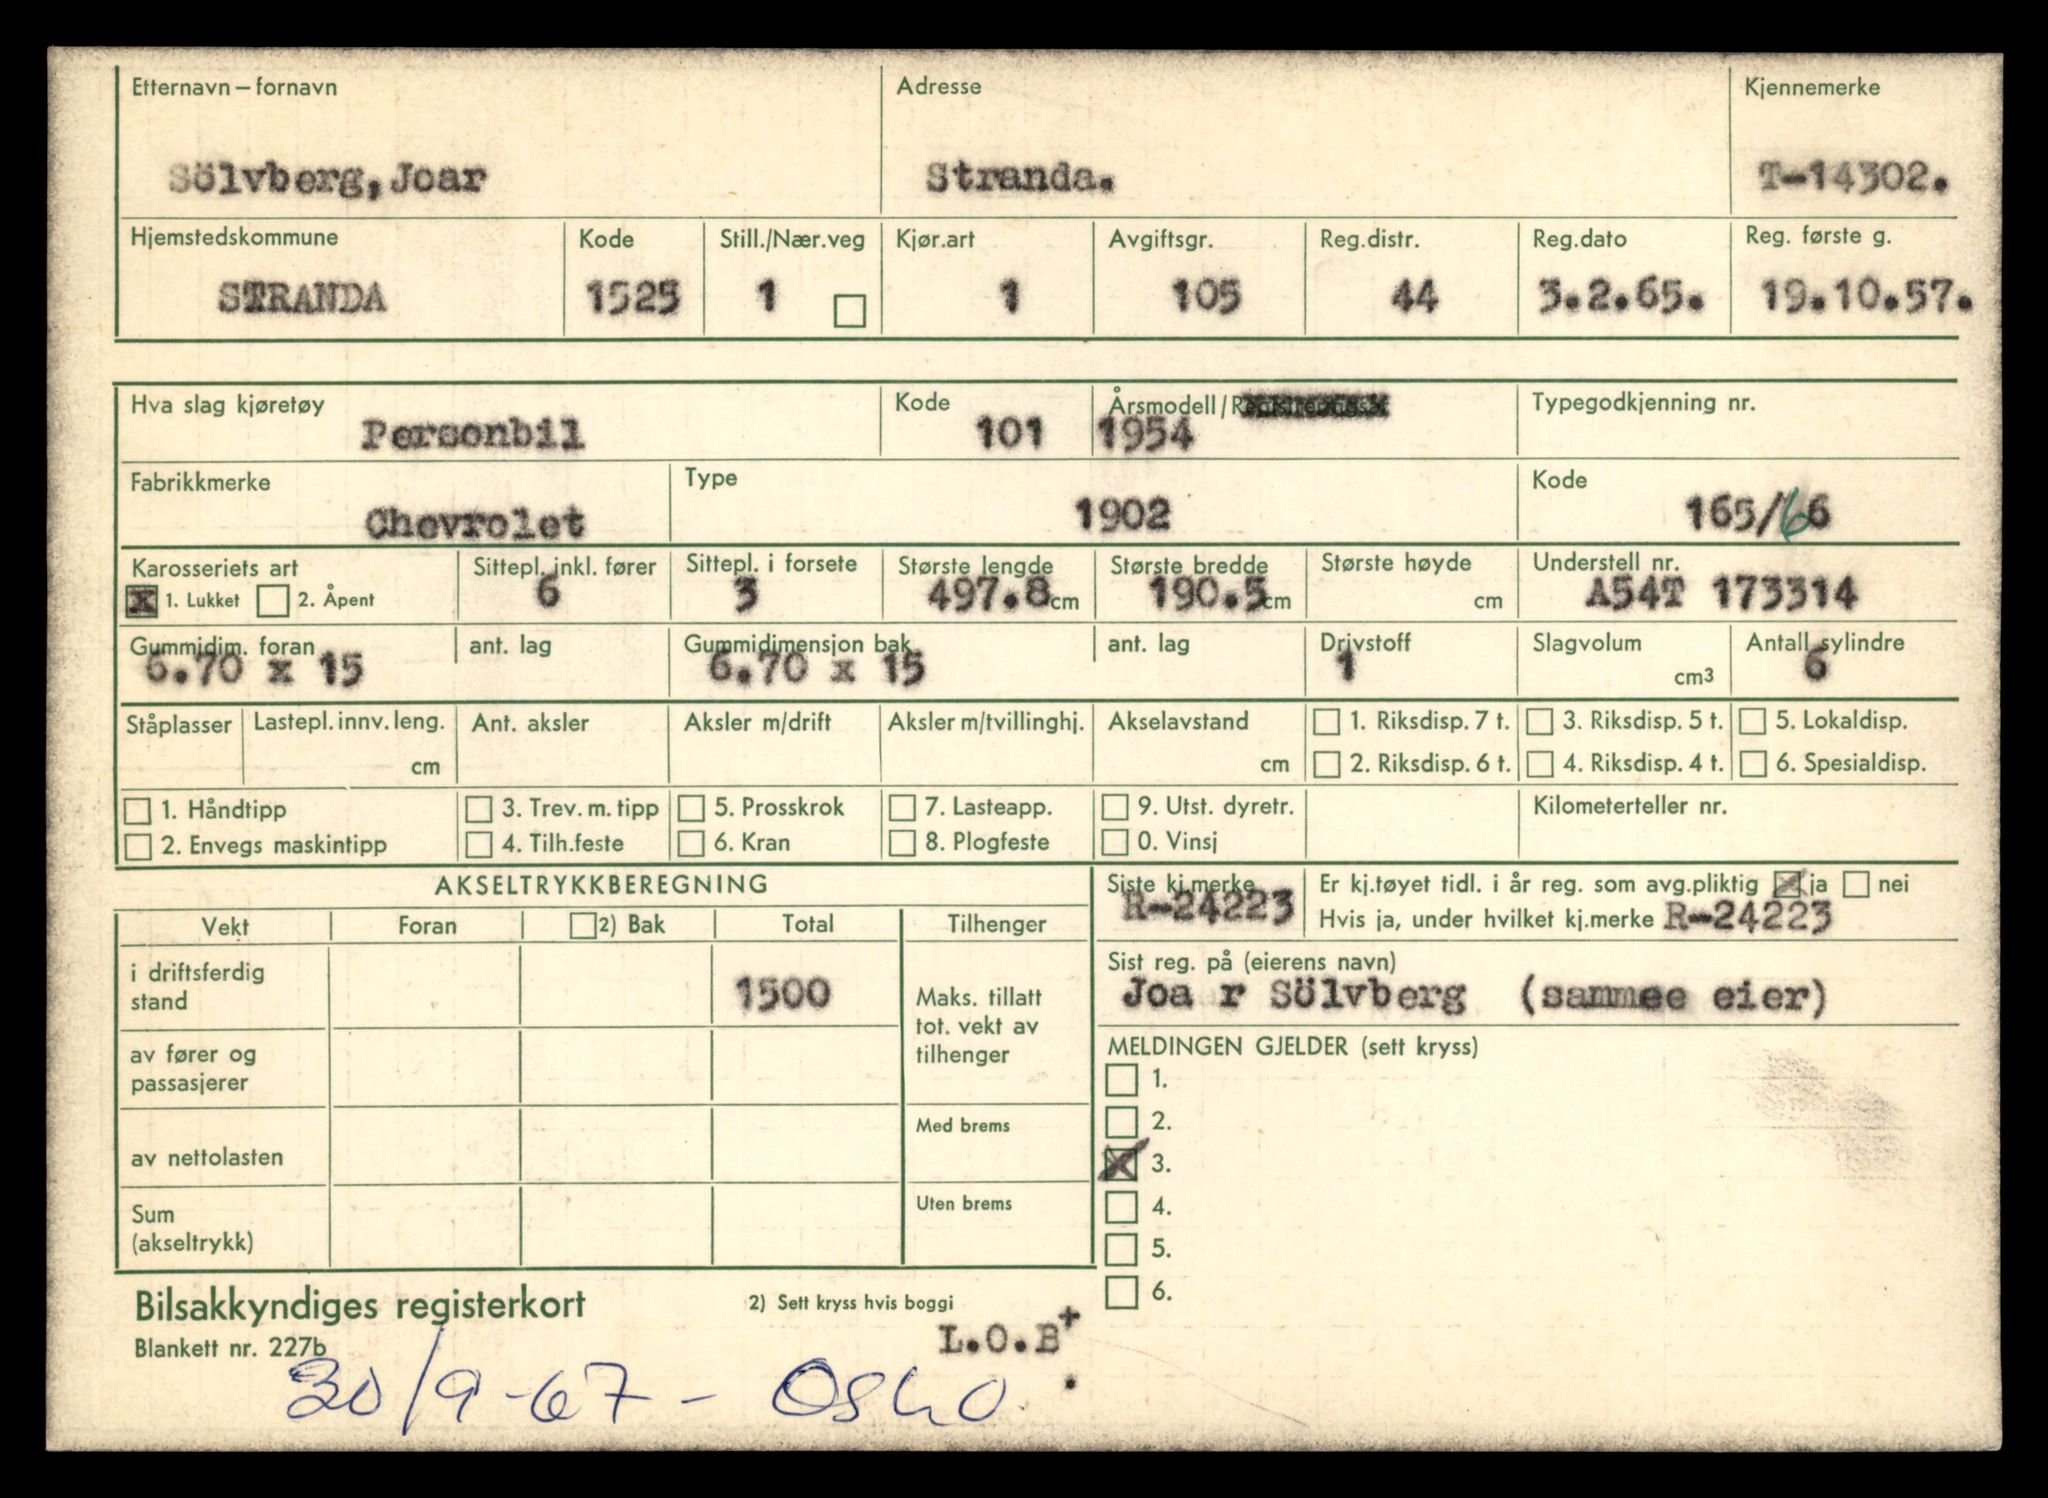 Etternavn – fornavn Adresse Kjennemerke
Sölvberg, Joar Stranda. T-14302.
Hjemstedskommune Kode Still./Nær.veg Kjør.art Avgiftsgr. Reg.distr. Reg.dato Reg. første g.
STRANDA 1525 1 1 105 44 3.2.65. 19.10.57.
Hva slag kjøretøy Kode Årsmodell/ Typegodkjenning nr.
Personbil 101 1954
Fabrikkmerke Type Kode
Chevrolet 1902 165/66
Karosseriets art Sittepl. inkl. fører Sittepl. i forsete Største lengde Største bredde Største høyde Understell nr.
x 1. Lukket 2. Åpent 6 3 497.8 cm 190.5 cm cm A54T 173314
Gummidim. foran ant. lag Gummidimensjon bak ant. lag Drivstoff Slagvolum Antall sylindre
6.70 x 15 6.70 x 15 1 cm3 6
Ståplasser Lastepl. innv. leng. Ant. aksler Aksler m/drift Aksler m/tvillinghj. Akselavstand 1. Riksdisp. 7 t. 3. Riksdisp. 5 t. 5. Lokaldisp.
cm cm 2. Riksdisp. 6 t. 4. Riksdisp. 4 t. 6. Spesialdisp.
1. Håndtipp 3. Trev. m. tipp 5. Prosskrok 7. Lasteapp. 9. Utst. dyretr. Kilometerteller nr.
2. Envegs maskintipp 4. Tilh.feste 6. Kran 8. Plogfeste 0. Vinsj
AKSELTRYKKBEREGNING Siste kj.merke Er kj.tøyet tidl. i år reg. som avg.pliktig x ja nei
R-24223 Hvis ja, under hvilket kj.merke R-24223
Vekt Foran 2) Bak Total Tilhenger
Sist reg. på (eierens navn)
i driftsferdig
stand 1500 Maks. tillatt
Joa r Sölvberg (sammee eier)
tot. vekt av
av fører og tilhenger MELDINGEN GJELDER (sett kryss)
passasjerer 1.
Med brems 2.
av nettolasten x 3.
Uten brems 4.
Sum
(akseltrykk) 5.
6.
Bilsakkyndiges registerkort 2) Sett kryss hvis boggi
Blankett nr. 227b L.O.B+
.
30/9-67 - Oslo.